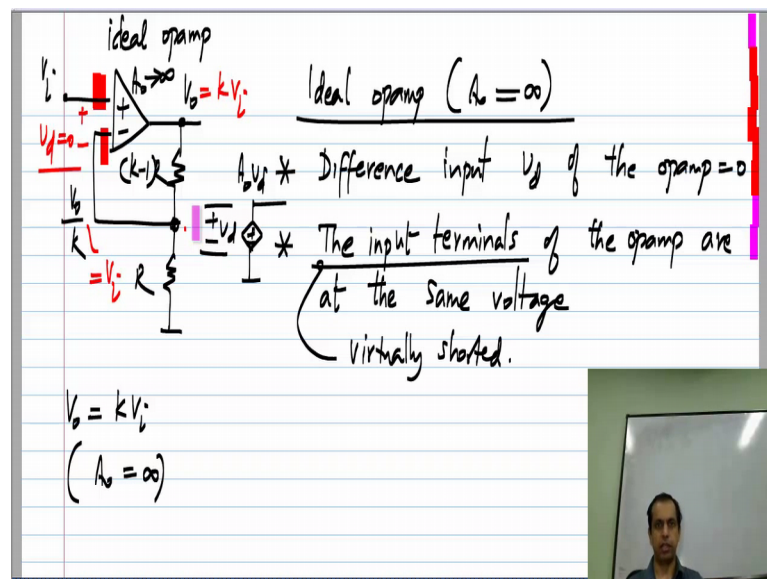 ideal opamp
Vi
A₀→∞
V₀ = kVi
+
-
+
Vd=0
-
(k-1)R
V₀/k
= Vi
R
A₀Vd
+
Vd
-
+
Ideal opamp (A₀ = ∞)
* Difference input Vd of the opamp=0
* The input terminals of the opamp are
at the same voltage
virtually shorted.
V₀ = kVi
(A₀ = ∞)